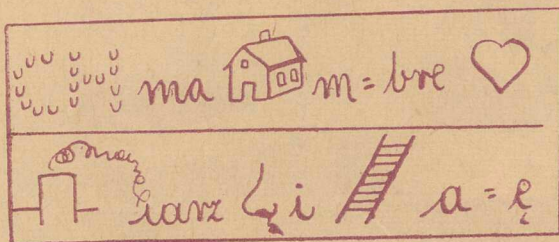 CH ma m=bre
iarz i a=ę